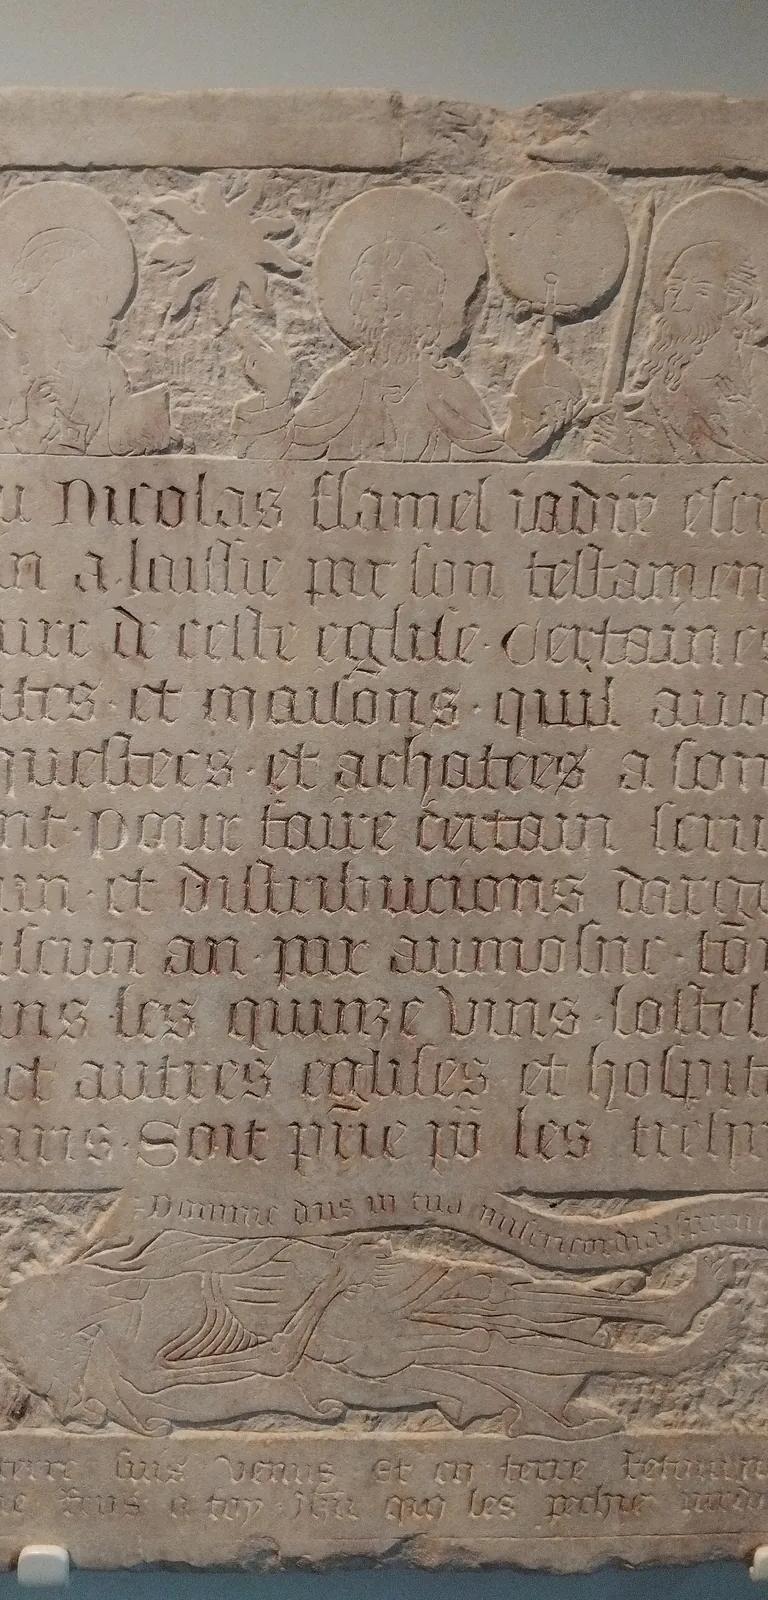 u Nicolas flamel iadiz escr
in a laissie par son testamen
ure de ceste eglise · Certaines
ites · et maisons · quil auo
questees · et achatees a son
nt · pour faire certain serui
uin · et distribucions darge
ascun an · par aumosne · to
ans · les quinze vins · lostel
et autres eglises et hospita
aris · Soit prie po les tresp
Domine deus in tua misericordia speraui
terre suis venus et en terre Retourn
me Rens a toy · Jhu qui les pechie